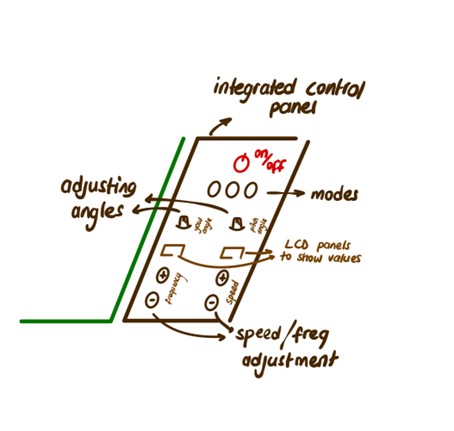 integrated control
panel
on/off
adjusting
angles
modes
yaw
angle
pitch
angle
LCD panels
to show values
frequency
speed
speed/freq
adjustment